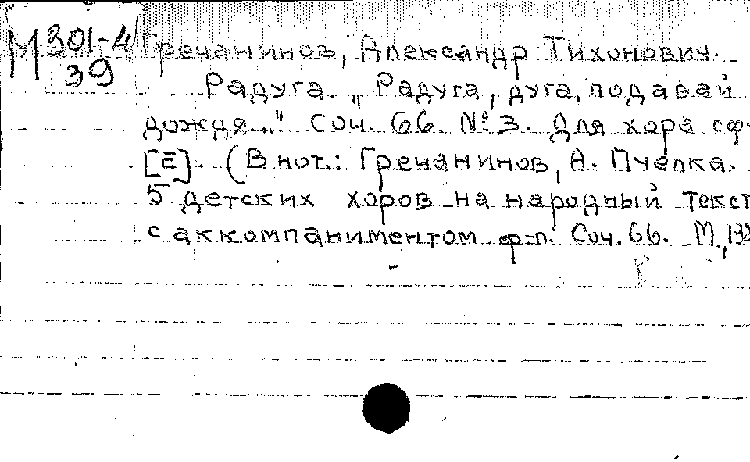 М 301-4
39
Гречанинов, Александр Тихонович.
Радуга. „Радуга, дуга, подавай
дождя..." Соч. 66. №3. Для хора с ф-
[E]. (В нот.: Гречанинов, А. Пчелка.
5 детских хоров на народный текст
с аккомпаниментом ф-п. Соч. 66. М.,